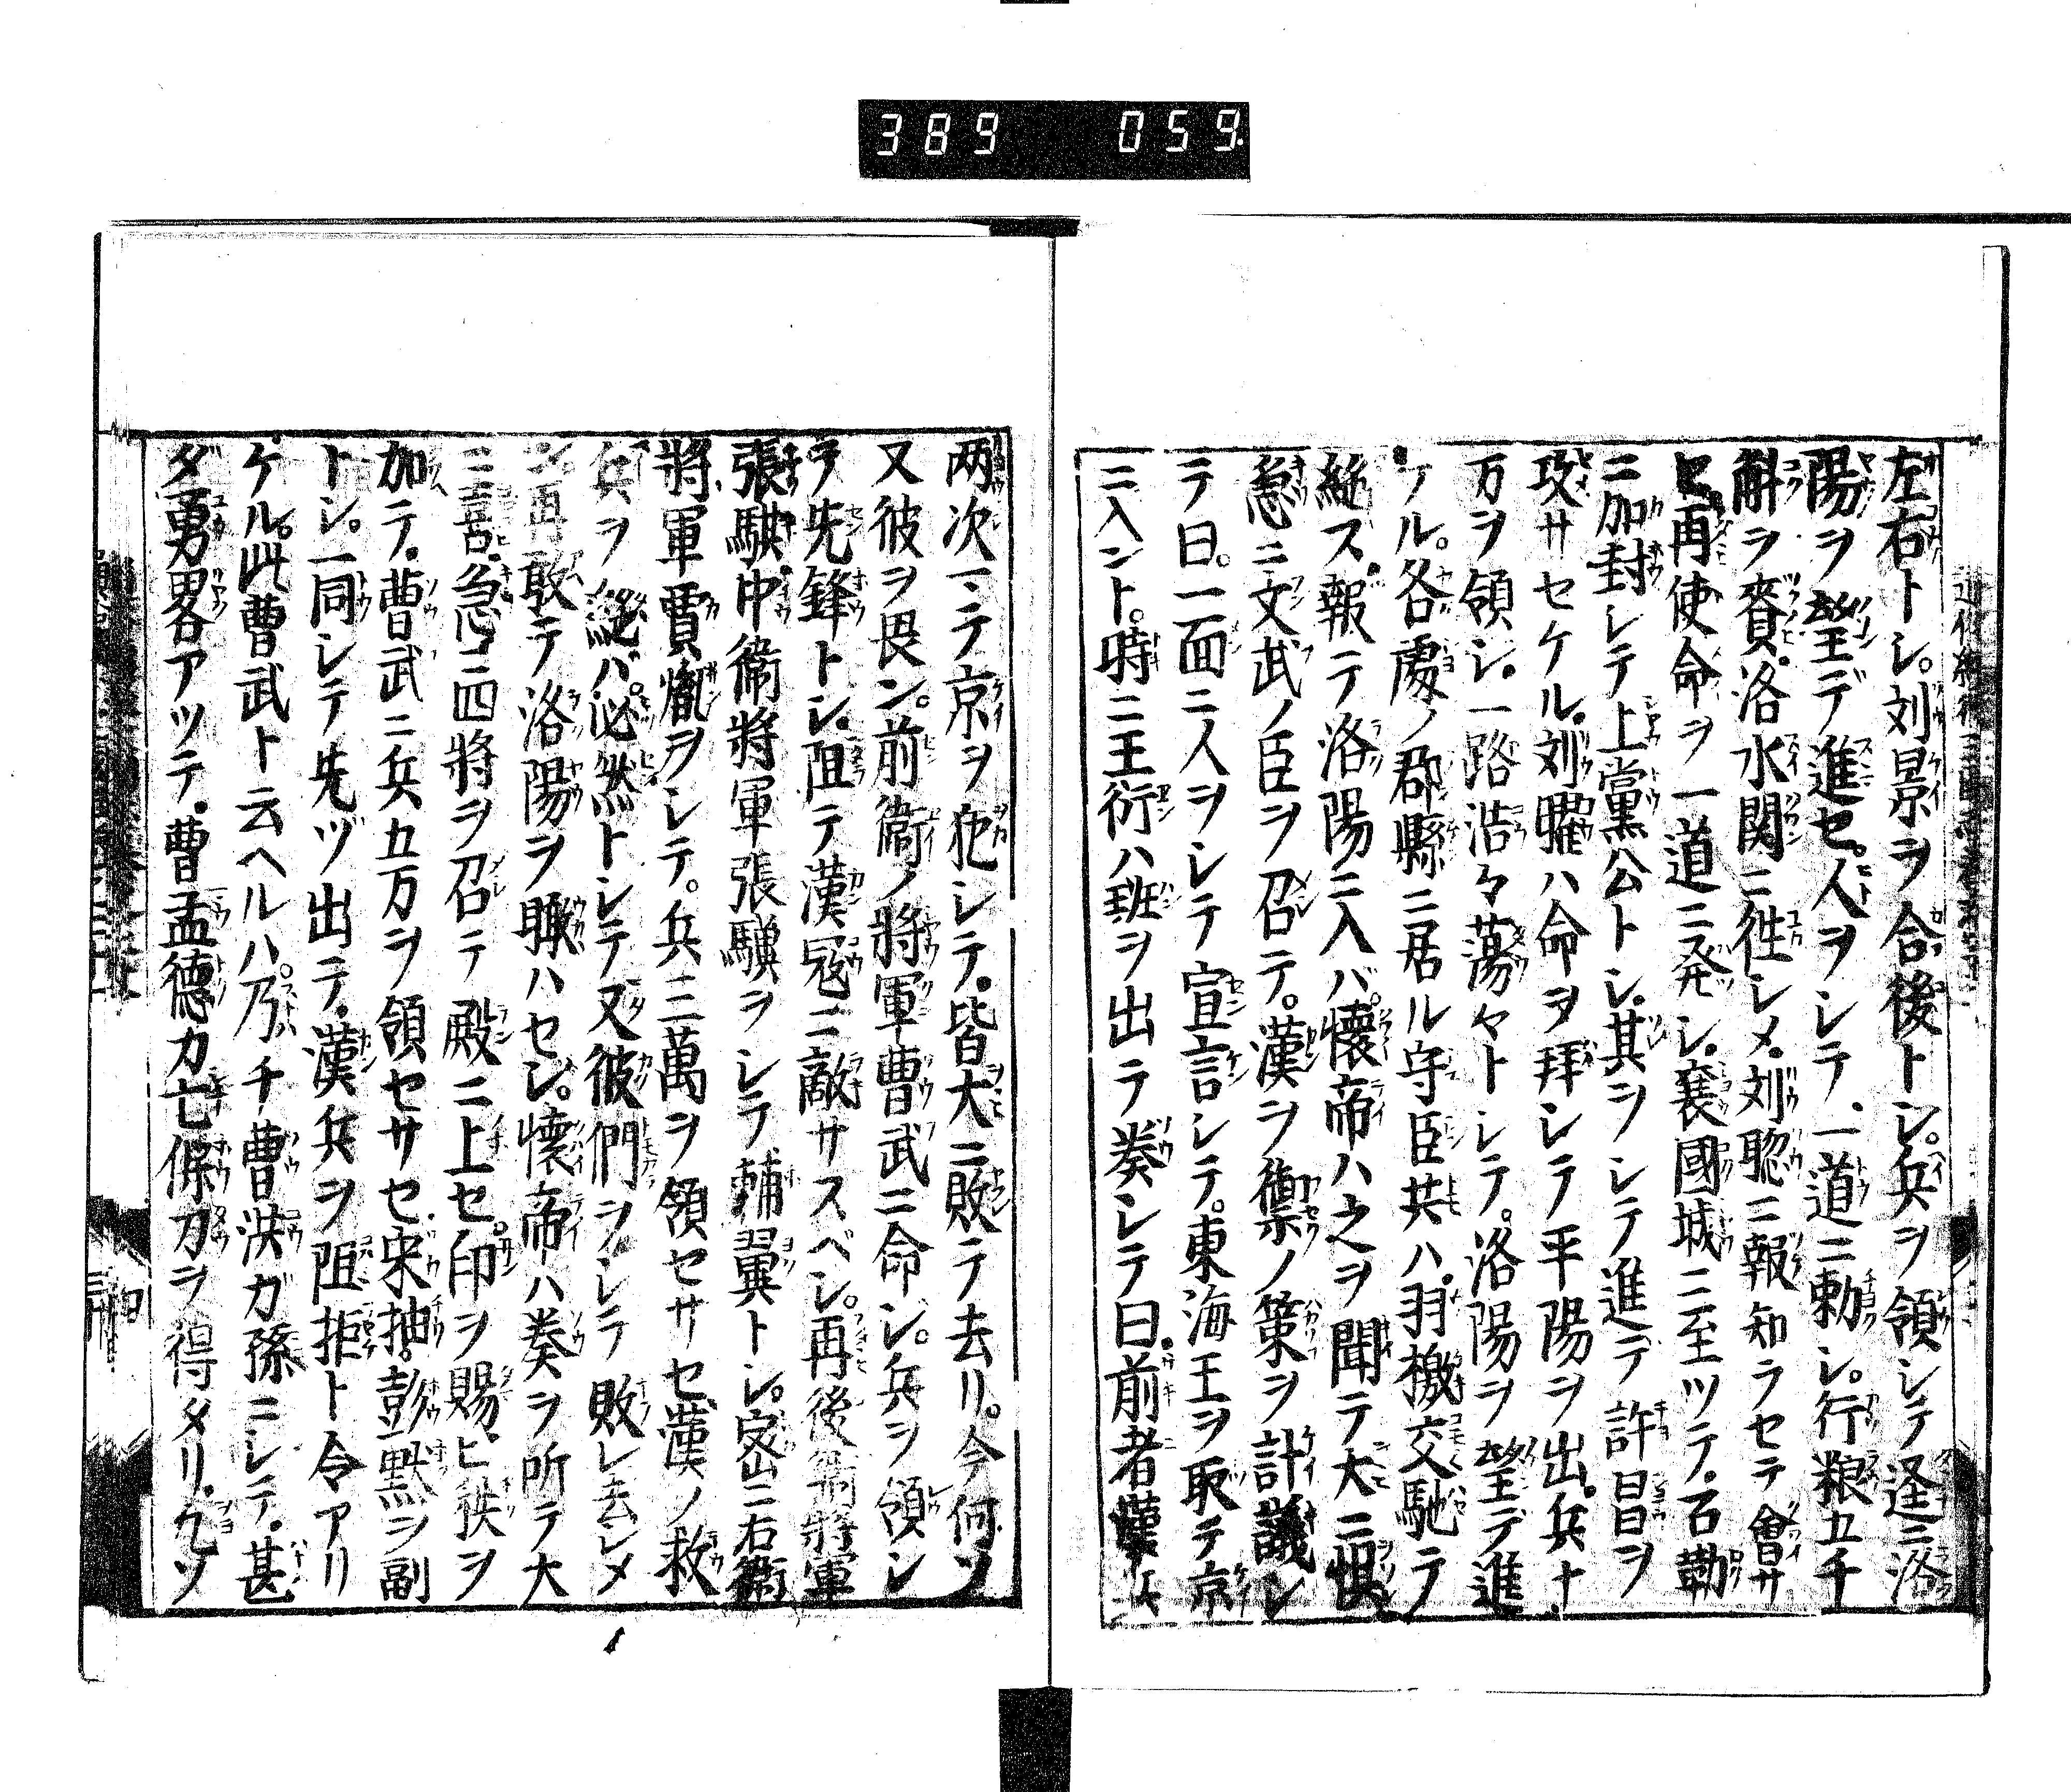 389 059
左右トシ。刘景ヲ合後トシ。兵ヲ領シテ逕ニ洛
陽ヲ望デ進セ。人ヲシテ一道ニ勅シ。行粮五千
斛ヲ賚。洛水関ニ徃シメ。刘聡ニ報知ラセテ會サ
セ。再使命ヲ一道ニ発シ。襄國城ニ至ツテ。石勒
ニ加封シテ上黨公トシ。其ヲシテ進デ許昌ヲ
攻サセケル。刘曜ハ命ヲ拜シテ平陽ヲ出。兵十
万ヲ領シ。一路浩々蕩々トシテ。洛陽ヲ望デ進
ケル。各處ノ郡縣ニ居ル守臣共ハ。羽檄交馳テ
縦ス。報テ洛陽ニ入バ。懐帝ハ之ヲ聞テ大ニ惧。
急ニ文武ノ臣ヲ召テ。漢ヲ禦ノ策ヲ計議シ
テ曰。一面ニ人ヲシテ宣言シテ。東海王ヲ取テ京
ニ入ント。時ニ王衍ハ班ヲ出テ奏シテ曰。前者漢
两次マテ京ヲ犯シテ。皆大ニ敗テ去リ。今何ソ
又彼ヲ畏ン。前衞ノ將軍曹武ニ命ジ。兵ヲ領シ
テ先鋒トシ。阻テ漢冦ニ敵サスベシ。再後衞將軍
張騻。中衞將軍張騏ヲシテ輔翼トシ。密ニ右衞
將軍賈胤ヲシテ。兵三萬ヲ領セサセ。漢ノ救
兵ヲ縦バ。必然トシテ又彼們ヲシテ敗レ去シメ
ン。再敢テ洛陽ヲ𮌎ハセジ。懐帝ハ奏ヲ所テ大
ニ喜。急ニ四將ヲ召テ殿ニ上セ。印ヲ賜ヒ秩ヲ
加テ。曹武ニ兵五万ヲ領セサセ。宋抽。彭默ヲ副
トシ。一同シテ先ヅ出テ。漢兵ヲ阻拒ト令アリ
ケル。此曹武ト云ヘルハ。乃チ曹洪ガ孫ニシテ。甚
ダ勇畧アツテ。曹孟德カ七條刀ヲ得タリ。凢ソ